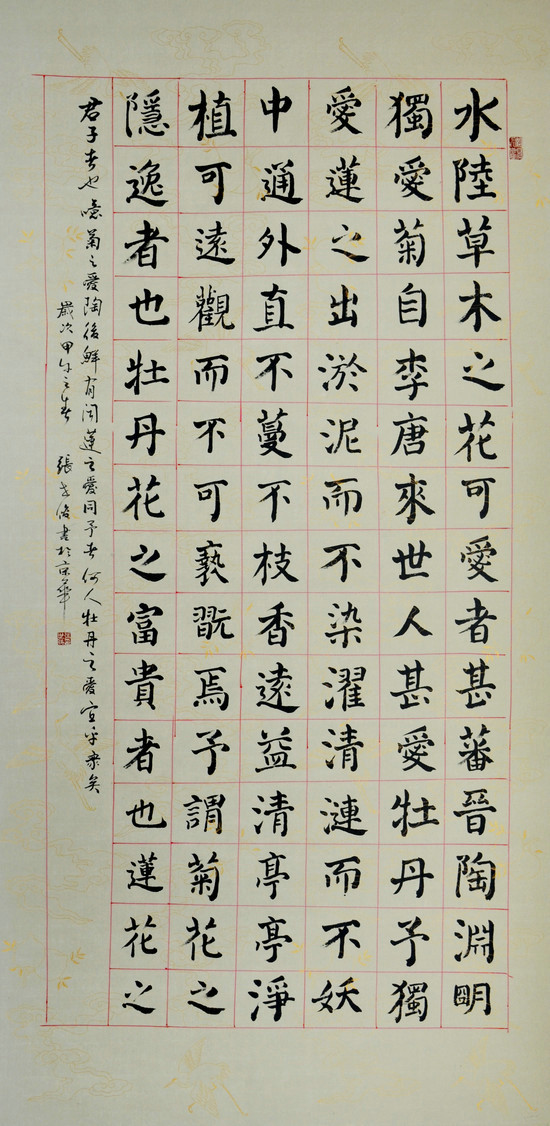 水陸草木之花可愛者甚蕃晉陶淵明
獨愛菊自李唐來世人甚愛牡丹予獨
愛蓮之出淤泥而不染濯清漣而不妖
中通外直不蔓不枝香遠益清亭亭淨
植可遠觀而不可褻翫焉予謂菊花之
隱逸者也牡丹花之富貴者也蓮花之
君子者也噫菊之愛陶後鮮有聞蓮之愛同予者何人牡丹之愛宜乎眾矣
歲次甲午之春 張俊書於京華